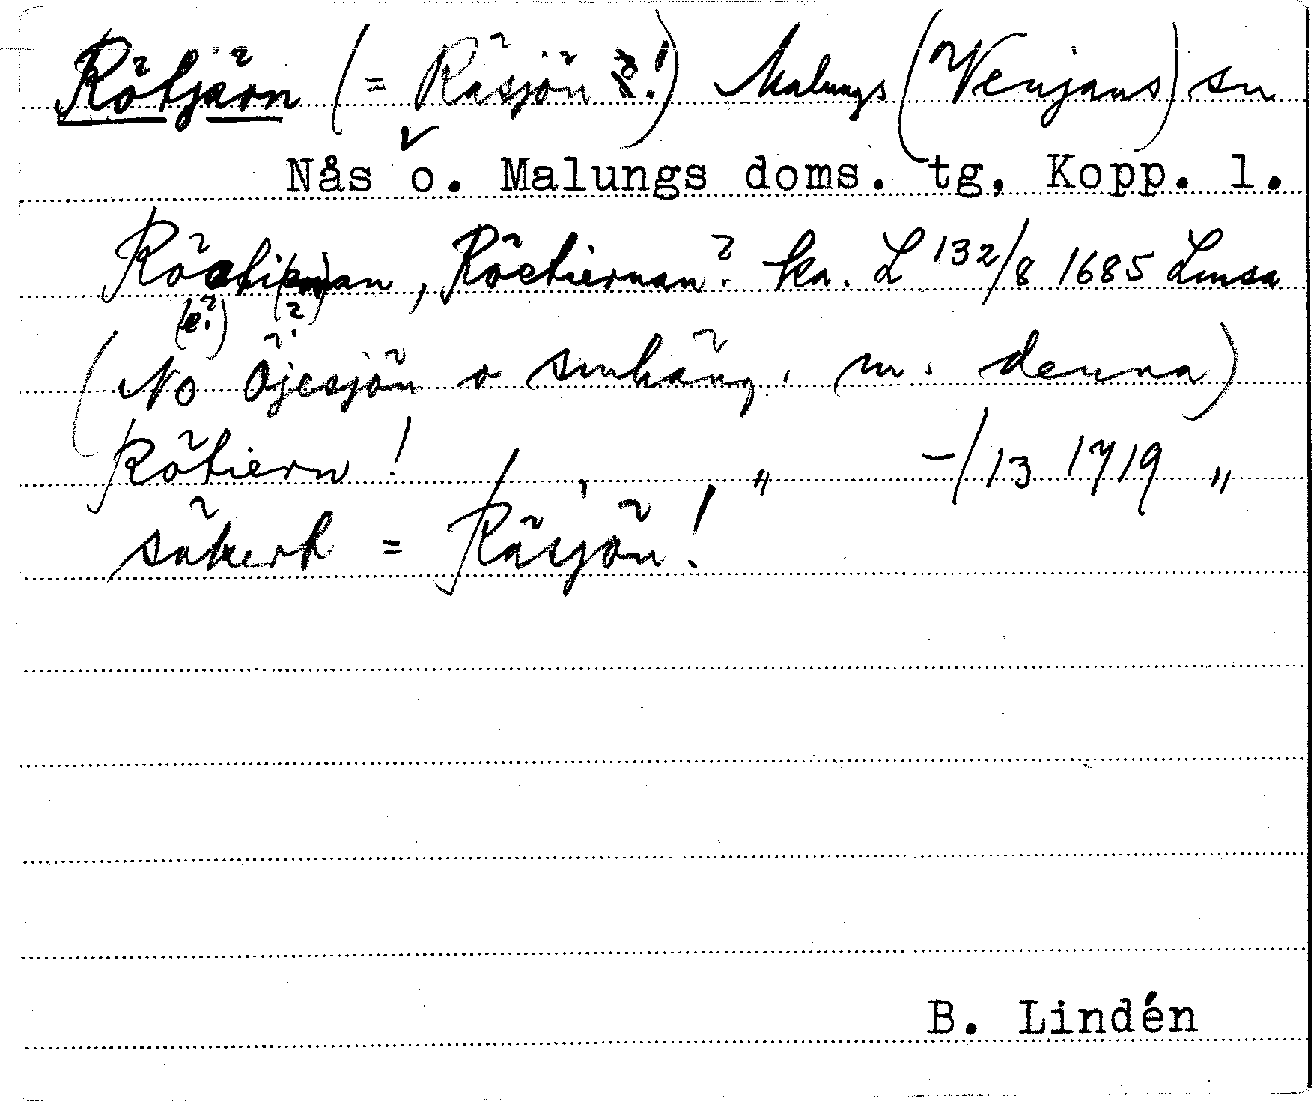 Rötjärn (= Räsjön ?!) Malungs (Venjans) sn
Nås o. Malungs doms. tg, Kopp. l.
Röctiernan, Röctiernan? ka. L 132/8 1685 Lmsa
(e?) (?)
(No Öjesjön o smhäng. m. denna)
Rötiern! , „ -/13 1719 „
säkerh = Räsjön!
B. Lindén